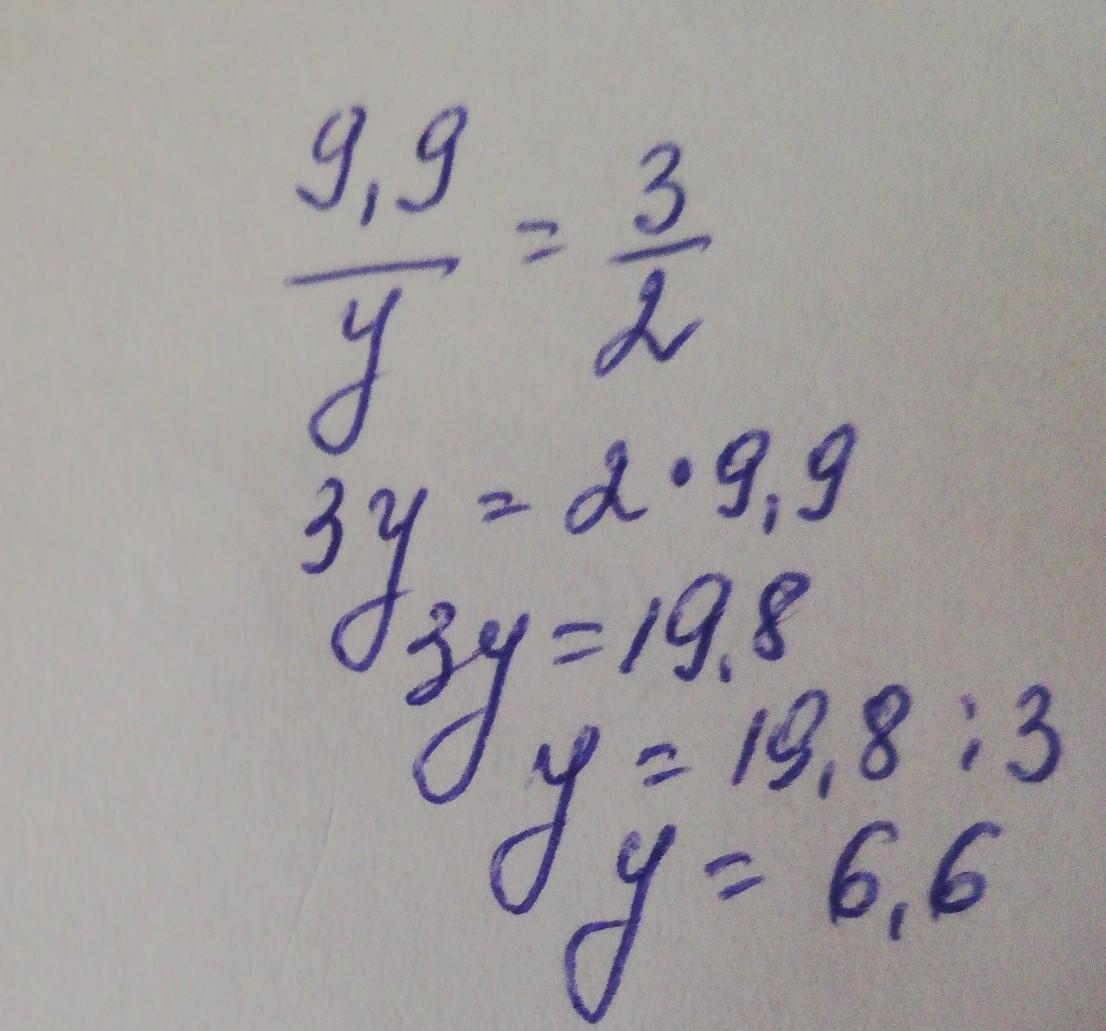 9,9/y = 3/2
3y = 2 · 9,9
3y = 19,8
y = 19,8 : 3
y = 6,6